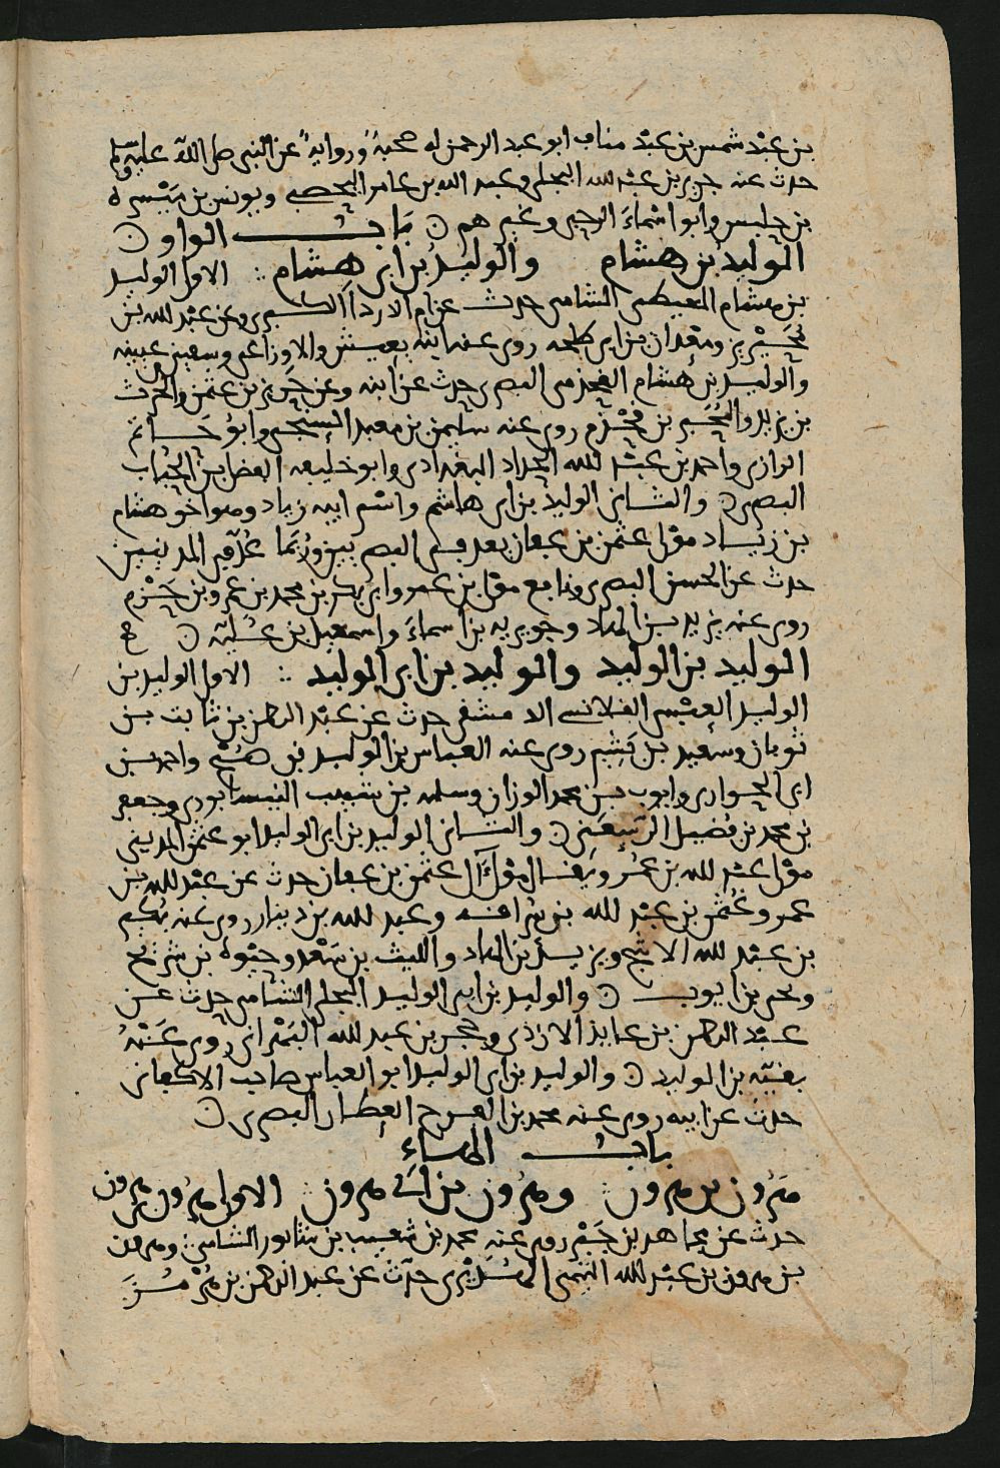 بن عبد شمس بن عبد مناف ابو عبد الرحمن له صحبة ورواية عن النبي صلى الله عليه وسلم
حدث عنه جرير بن عبد الله البجلي وعبد الله بن عامر اليحصبي ويونس بن ميسرة
بن حلبس وابو اسماء الرحبي وغيرهم باب الواو
الوليد بن هشام والوليد بن ابي هشام الاول الوليد
بن هشام المعيطي الشامي حدث عن ام الدرداء الكبرى وعن عبد الله بن
محيريز ومعدان بن ابي طلحه روى عنه ابنه يعيش والاوزاعي وسفين بن عيينه
والوليد بن هشام القحذمي البصري حدث عن ابيه وعن حريز بن عثمن والحرث
بن يزيد روى عنه سليمن بن معبد السنجي وابو حاتم
الرازي واحمد بن عبد الله الحداد البغدادي وابو خليفه الفضل بن الحباب
البصري والثاني الوليد بن ابي هاشم واسم ابيه زياد وهو اخو هشام
بن زياد مولى عثمن بن عفان يعد في البصريين وربما عد في المدنيين
حدث عن الحسن البصري ونافع مولى بن عمر وابي بكر بن محمد بن عمرو بن حزم
روى عنه يزيد بن الهاد وجويرية بن اسماء واسمعيل بن علية
الوليد بن الوليد والوليد بن ابي الوليد الاول الوليد بن
الوليد العبسي القلانسي الدمشقي حدث عن عبد الرحمن بن ثابت بن
ثوبان وسعيد بن بشير روى عنه العباس بن الوليد بن صبح واحمد بن
ابي الحواري وايوب بن محمد الوزان وسلمه بن شبيب النيسابوري وجعفر
بن محمد بن فضيل الرسعني والثاني الوليد بن ابي الوليد ابو عثمن المديني
مولى عبد الله بن عمر ويقال مولى آل عثمن بن عفان حدث عن عبد الله بن
عمر وعثمن بن عبد الله بن سراقه وعبد الله بن دينار روى عنه بكير
بن عبد الله الاشج ويزيد بن الهاد والليث بن سعد وحيوة بن شريح
ويحيى بن ايوب والوليد بن ابي الوليد البجلي الشامي حدث عن
عبد الرحمن بن عايذ الازدي وحجر بن عبد الله روى عنه
بقية بن الوليد والوليد بن ابي الوليد ابو العباس صاحب الاكفاني
حدث عن ابيه روى عنه محمد بن الفرج العطار البصري
باب الهاء
هرون بن هرون وهرون بن ابي هرون الاول هرون بن هرون
حدث عن مجاهد بن جبر روى عنه محمد بن شعيب بن شابور الشامي وهرون
بن هرون بن عبد الله التيمي الهديري حدث عن عبد الرحمن بن هرمز